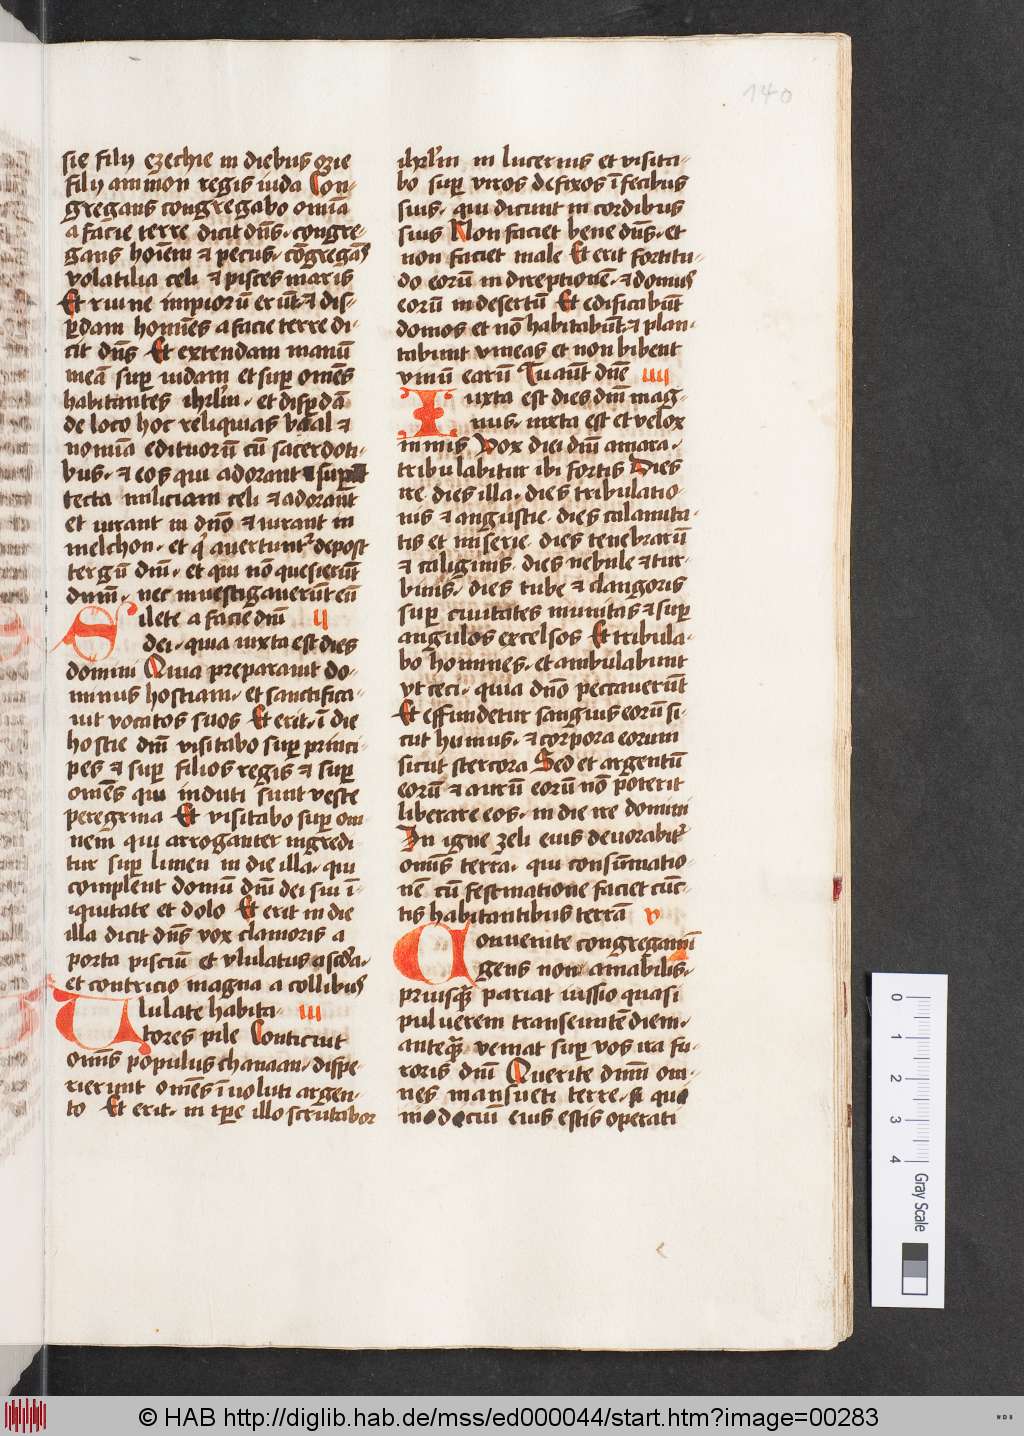 140
sie filij ezechie in diebus ozie
filij ammon regis iuda Con-
gregans congregabo om̄ia
a facie terre dicit dn̄s· congre-
gans hoīem ⁊ pecus· cōgregās
volatilia celi ⁊ pisces maris
Et ruine impiorū erūt· ⁊ dis-
ꝑdam homīes a facie terre di-
cit dn̄s Et extendam manū
meā suꝑ iudam et suꝑ omēs
habitantes ihrl̄m· et disꝑdā
de loco hoc reliquias baal ⁊
nomīa edituorū cū sacerdoti-
bus· ⁊ eos qui adorant suꝑ
tecta miliciam celi ⁊ adorant
et iurant in dn̄o ⁊ iurant in
melchon· et qͥ auertuntᷣ de post
tergū dn̄i· et qui nō quesierūt
dn̄m· nec inuestigauerūt eū
Silete a facie dn̄i ij
dei· quia iuxta est dies
domini Quia preparauit do-
minus hostiam· et sanctifica-
uit vocatos suos Et erit· ī die
hostie dn̄i visitabo suꝑ princi-
pes ⁊ suꝑ filios regis ⁊ suꝑ
omēs qui induti sunt veste
peregrina Et visitabo suꝑ om
nem qui arroganter ingredi
tur suꝑ limen in die illa· qui
complent domū dn̄i dei sui ī-
iquitate et dolo Et erit in die
illa dicit dn̄s vox clamoris a
porta pisciū et vlulatus a scd̄a·
et contricio magna a collibus
Vlulate habita- iij
tores pile Conticuit
omīs populus chanaan· dispe-
rierunt omēs īuoluti argen-
to Et erit· in tꝑe illo scrutabor
ihrl̄m in lucernis et visita-
bo suꝑ viros defixos ī fecibus
suis· qui dicunt in cordibus
suis Non faciet bene dn̄s· et
non faciet male Et erit fortitu-
do eorū in direptionē· ⁊ domus
eorū in desertū Et edificabūt
domos et nō habitabūt· ⁊ plan-
tabunt vineas et non bibent
vinū earū iiij
Iuxta est dies dn̄i mag-
nus· iuxta est et velox
nimis Vox diei dn̄i amara·
tribulabitur ibi fortis Dies
ire dies illa· dies tribulatio-
nis ⁊ angustie· dies calamita-
tis et miserie· dies tenebrarū
⁊ caliginis· dies nebule ⁊ tur-
binis· dies tube ⁊ clangoris
suꝑ ciuitates munitas ⁊ suꝑ
angulos excelsos Et tribula-
bo homines· et ambulabunt
vt ceci· quia dn̄o peccauerūt
Et effundetur sanguis eorū si-
cut humus· ⁊ corpora eorum
sicut stercora Sed et argentū
eorū ⁊ aurū eorū nō poterit
liberare eos· in die ire domini
In igne zeli eius deuorabitᷣ
omīs terra· qui consūmatio-
nē cū festinatione faciet cūc-
tis habitantibus terrā v
Conuenite congregamī
gens non amabilis·
priusq̄ pariat iussio quasi
puluerem transeuntē diem·
anteq̄ veniat suꝑ vos ira fu-
roris dn̄i Querite dn̄m om-
nes mansueti terre· qui
iudiciū eius estis operati
0 1 2 3 4 Gray Scale
© HAB http://diglib.hab.de/mss/ed000044/start.htm?image=00283